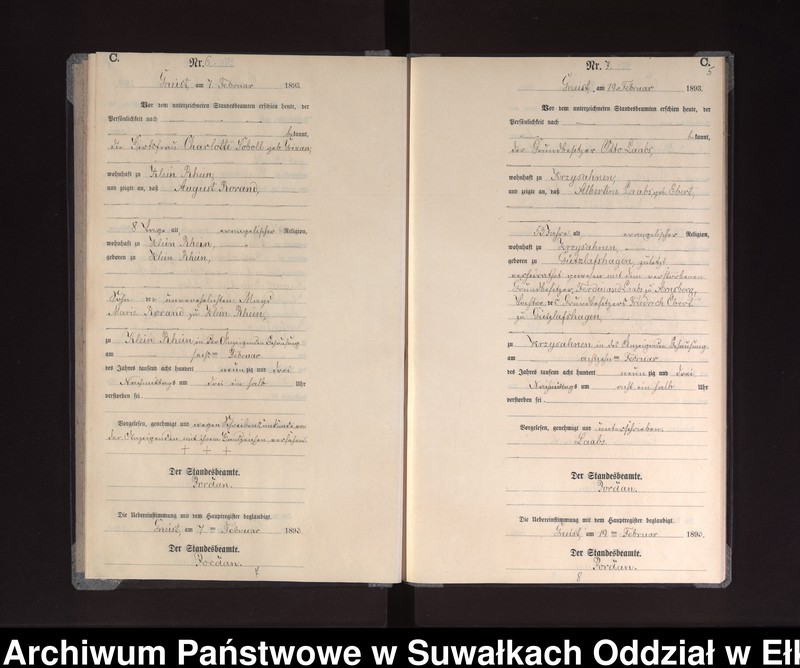 C.
Nr. 6.
Gneist, am 7. Februar 1893.
Vor dem unterzeichneten Standesbeamten erschien heute, der
Persönlichkeit nach
bekannt,
die Charlotte geb.
wohnhaft zu Klein Rhein,
und zeigte an, daß August Rorand,
8 Tage alt, evangelischer Religion,
wohnhaft zu Klein Rhein,
geboren zu Klein Rhein,
Sohn der unverehelichten Magd
Marie Rorand zu Klein Rhein,
zu Klein Rhein in der Anzeigenden Behausung
am Februar
des Jahres tausend acht hundert neunzig und drei
Nachmittags um drei ein halb Uhr
verstorben sei
Vorgelesen, genehmigt und wegen Schreibensunkunde von
der Anzeigenden mit ihrem Handzeichen versehen.
+ + +
Der Standesbeamte.
Jordan.
Die Uebereinstimmung mit dem Hauptregister beglaubigt.
Gneist, am 7ten Februar 1893.
Der Standesbeamte.
Jordan.
Nr. 7.
C.
5
Gneist, am 19. Februar 1893.
Vor dem unterzeichneten Standesbeamten erschien heute, der
Persönlichkeit nach
bekannt,
der Grundbesitzer Otto Laabs,
wohnhaft zu Krzysahnen,
und zeigte an, daß Albertine Laabs geb. Ebert,
53 Jahre alt evangelischer Religion,
wohnhaft zu Krzysahnen,
geboren zu Gützlafshagen, zuletzt
verheirathet gewesen mit dem verstorbenen
Grundbesitzer Ferdinand Laabs zu Arnsberg,
Tochter des Grundbesitzers Friedrich Ebert
zu Gützlafshagen,
zu Krzysahnen in des Anzeigenden Behausung
am achtzehnten Februar
des Jahres tausend acht hundert neunzig und drei
Nachmittags um acht ein halb Uhr
verstorben sei
Vorgelesen, genehmigt und unterschrieben
Laabs.
Der Standesbeamte.
Jordan.
Die Uebereinstimmung mit dem Hauptregister beglaubigt.
Gneist, am 19ten Februar 1893.
Der Standesbeamte.
Jordan.
8
Archiwum Państwowe w Suwałkach Oddział w Eł